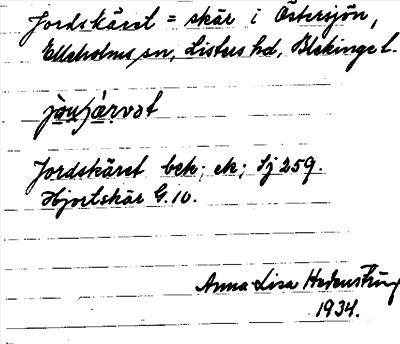 Jordskäret = skär i Östersjön,
Elleholms sn, Listers hd, Blekinge l.
Jordskäret bek; ek; Sj 259.
Hjortskär G. 10.
Anna Lisa Hedenström
1934.